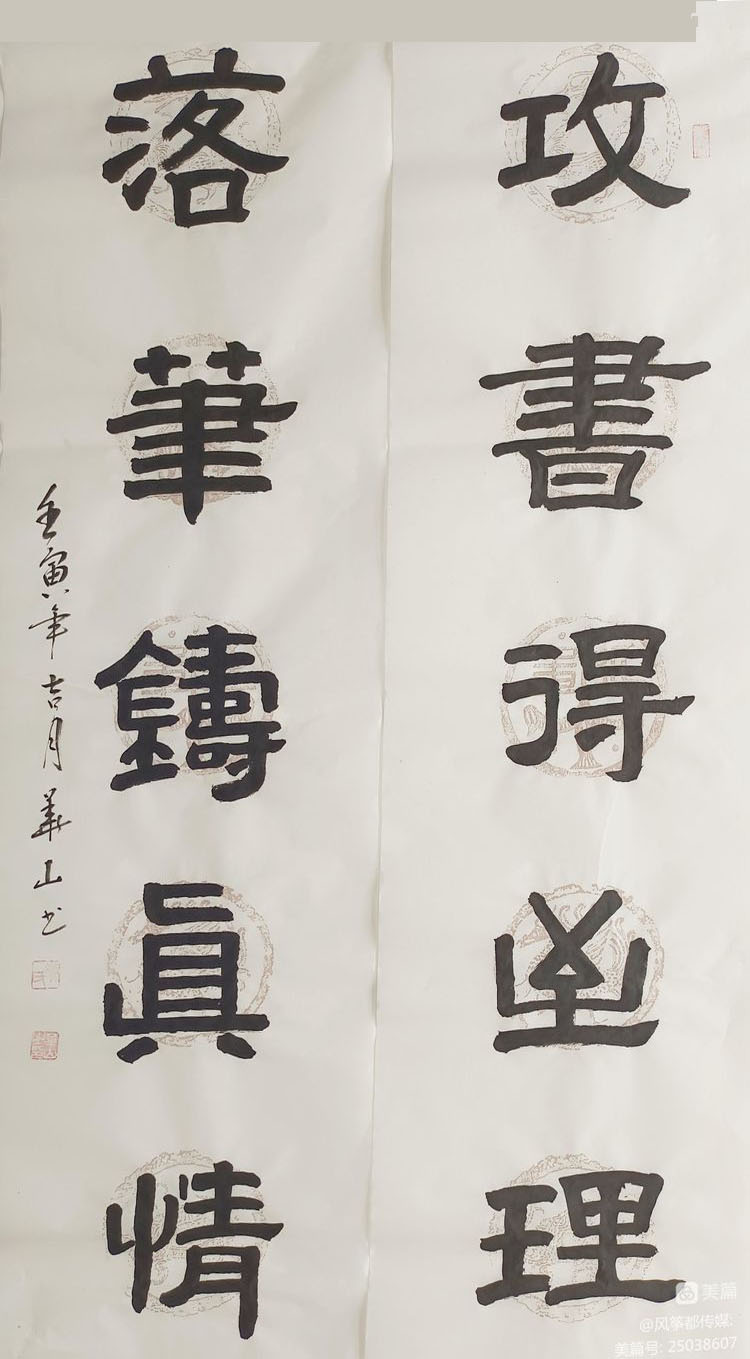 攻書得理
落筆鑄眞情
壬寅年吉月華山书
美篇
@风筝都传媒:
美篇号: 25038607